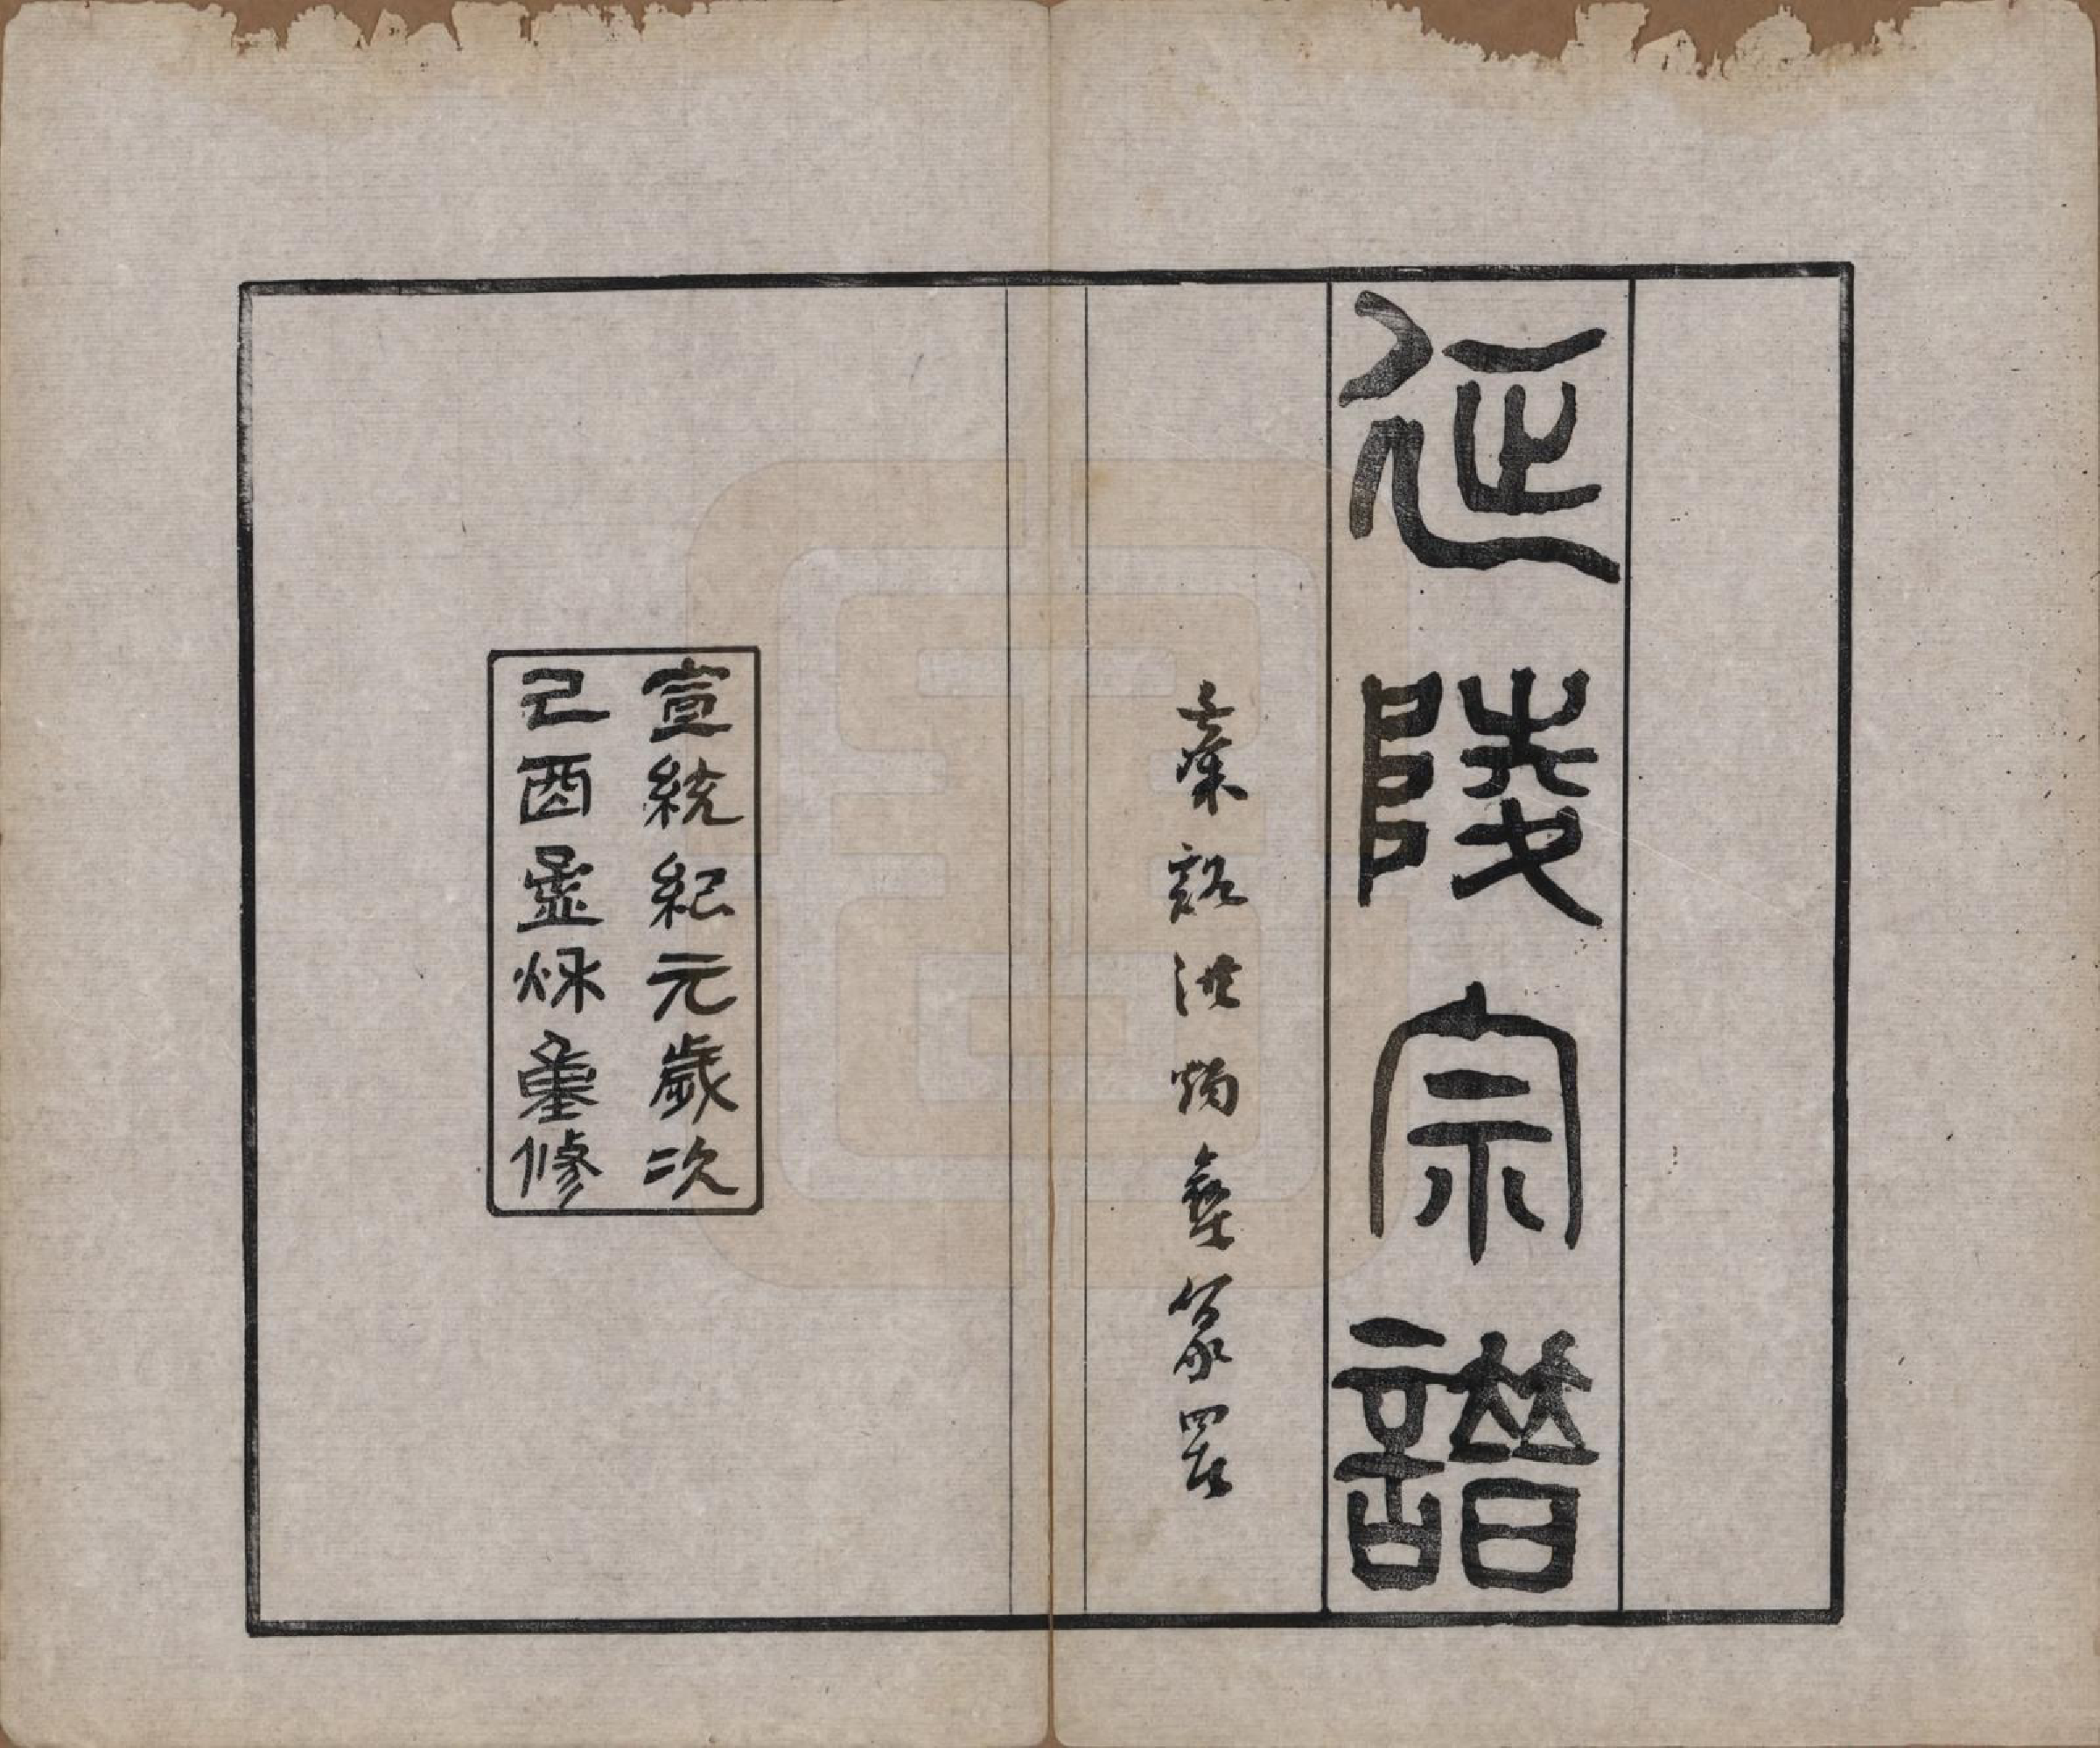 延陵宗譜
谿洪篆署
宣統紀元歲次
己酉孟秌重修